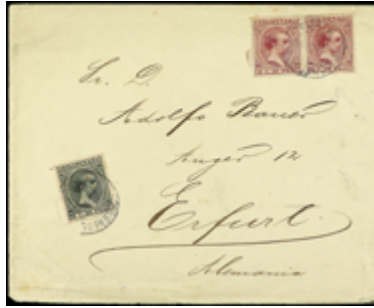 Sr. D.
Adolfo Bauer
Anger 12
Erfurt
Alemania